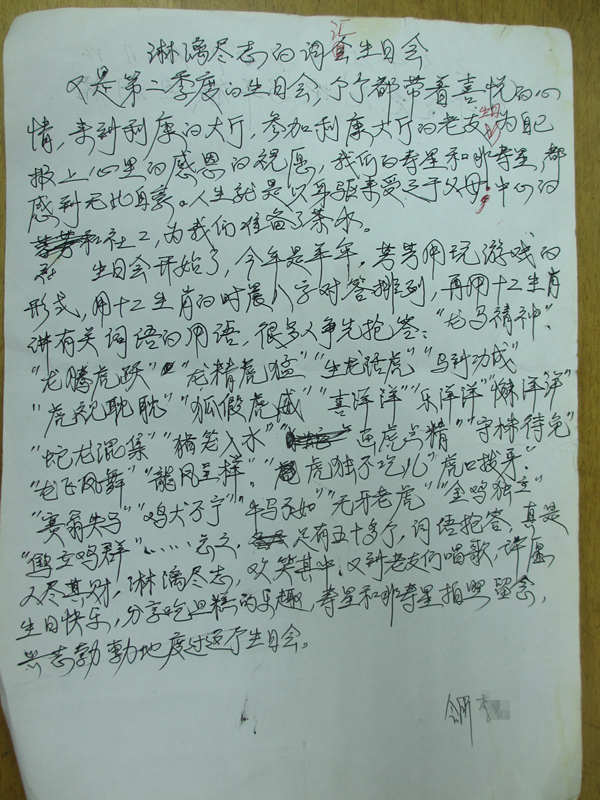 淋漓尽志的词汇生日会
又是第二季度的生日会,个个都带着喜悦的心
情,来到利康的大厅,参加利康大厅的老友生日,为自己
报上心里的感恩的祝愿,我们的寿星和非寿星,都
感到无比自豪。人生就是以身驱来受之于父母。中心的
社工,为我们准备了茶水。
生日会开始了,今年是羊年,芳芳用玩游戏的
形式,用十二生肖的时晨八字对答排列,再用十二生肖
讲有关词语的用语,很多人争先抢答:“龙马精神”、
“龙腾虎跃”“龙精虎猛”“生龙活虎”“马到功成”
“虎视耽耽”“狐假虎威”“喜洋洋”“乐洋洋”“懒洋洋”
“蛇龙混集”“猪笼入水”“画虎点精”“守株待兔”
“龙飞凤舞”“龍凤呈样”。“虎独不吃儿”“虎口拨牙”
“赛翁失马”“鸡犬不宁”“牛马不如”“无牙老虎”“金鸡独立”
“鹤立鸡群”……总之,足有五十多个,词语抢答,真是
人尽其财,淋漓尽志,欢笑其中。又到老友们唱歌,
生日快乐,分享吃旦糕的乐趣,寿星和非寿星拍照留念,
兴志勃勃地度过这个生日会。